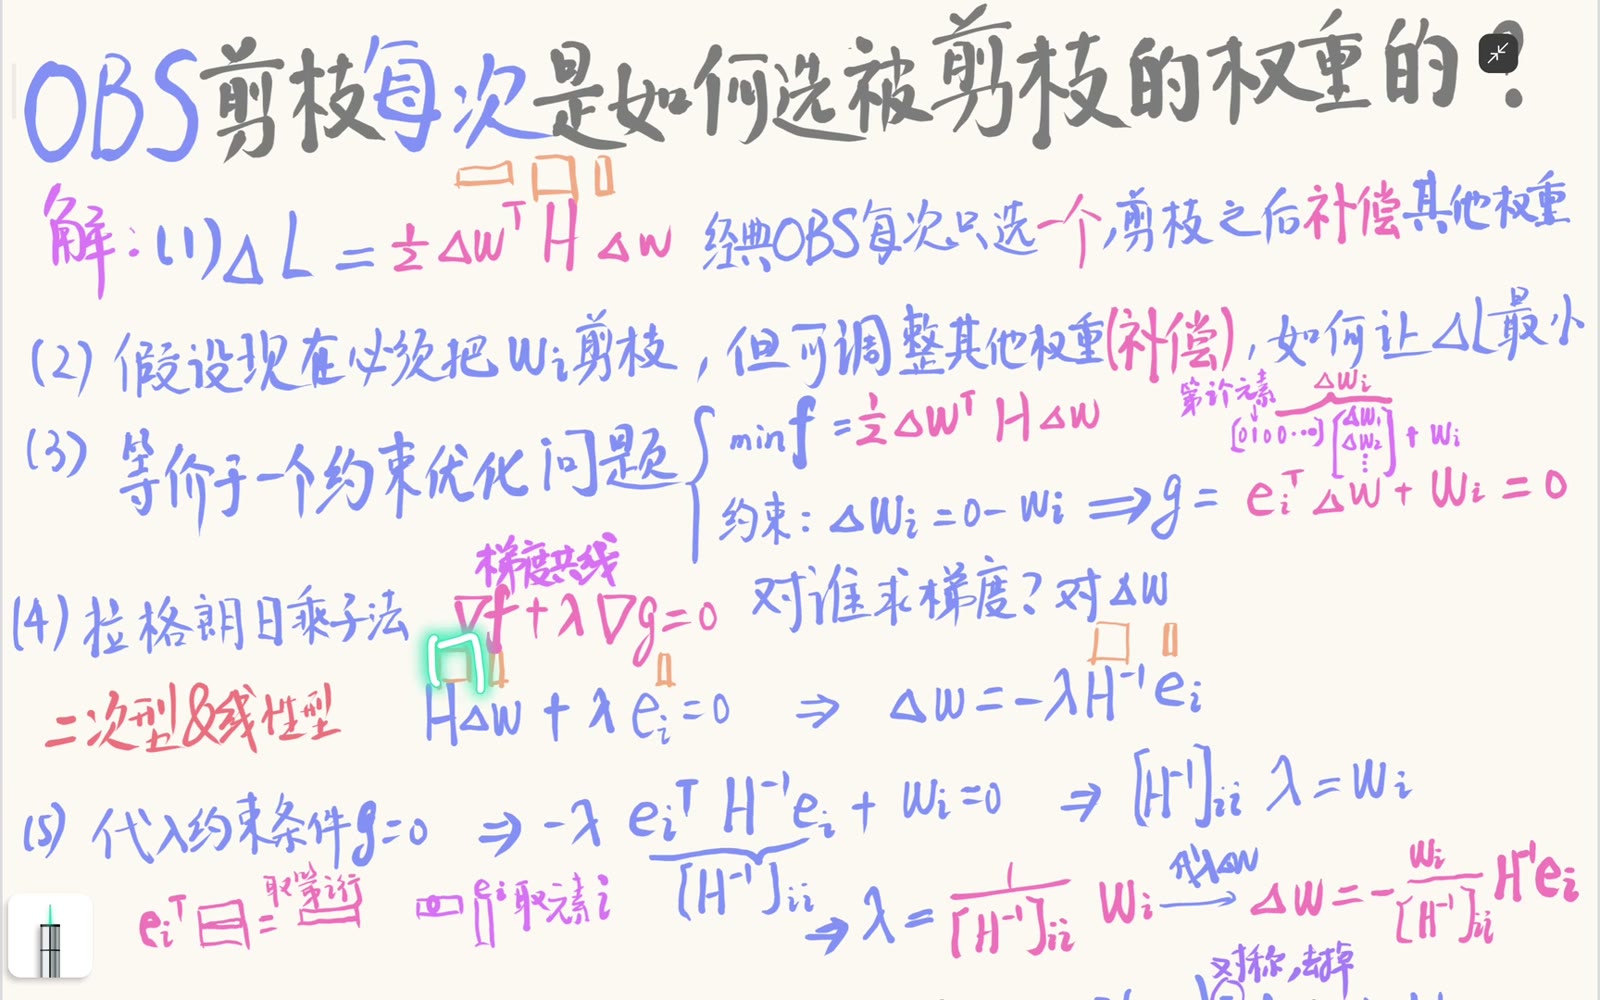 OBS剪枝每次是如何选被剪枝的权重的？
解：(1) ΔL = ½ Δwᵀ H Δw 经典OBS每次只选一个，剪枝之后补偿其他权重
(2) 假设现在必须把 wᵢ 剪枝，但可调整其他权重(补偿)，如何让ΔL最小
(3) 等价于一个约束优化问题 { min f = ½ Δwᵀ H Δw
第i个元素 Δwᵢ
↓ [0100…0] [Δw₁ Δw₂ ⋮] + wᵢ
约束：Δwᵢ = 0 - wᵢ ⟹ g = eᵢᵀ Δw + wᵢ = 0
梯度共线
(4) 拉格朗日乘子法 ∇f + λ∇g = 0 对谁求梯度？对Δw
二次型&线性型 HΔw + λeᵢ = 0 ⇒ Δw = -λH⁻¹eᵢ
(5) 代入约束条件g=0 ⇒ -λ eᵢᵀ H⁻¹eᵢ + wᵢ = 0 ⇒ [H⁻¹]ᵢᵢ λ = wᵢ
[H⁻¹]ᵢᵢ
eᵢᵀ = 取第i行 eᵢ 取元素i
⇒ λ = 1/[H⁻¹]ᵢᵢ wᵢ 代入Δw → Δw = - wᵢ/[H⁻¹]ᵢᵢ H⁻¹eᵢ
对称，去掉